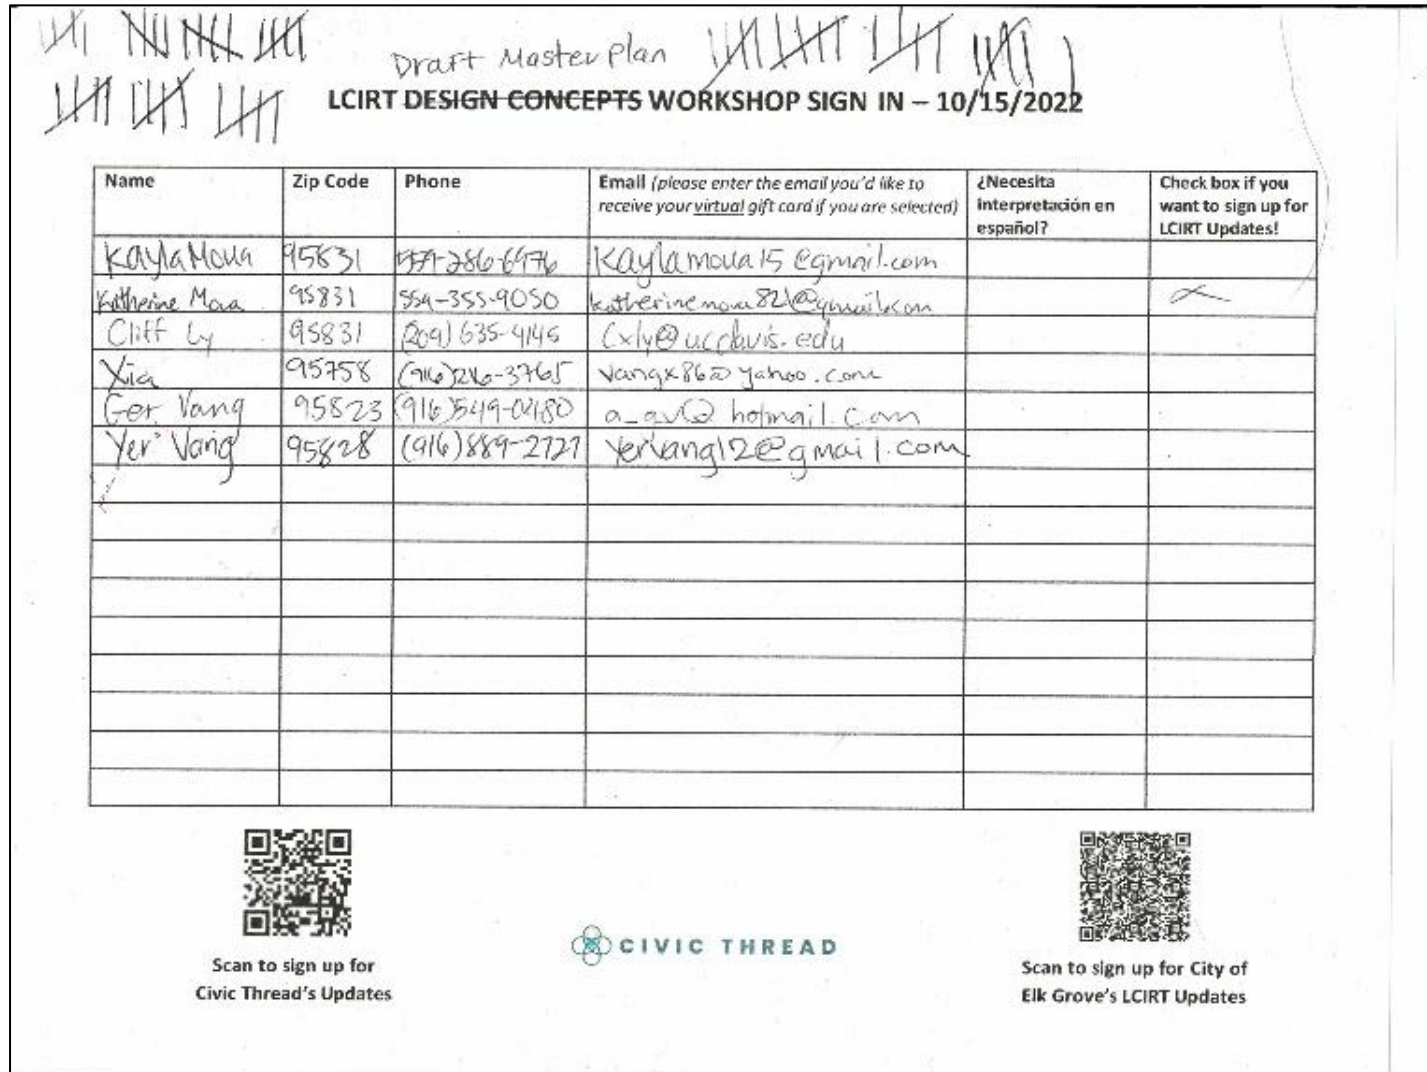 Draft Master Plan
LCIRT DESIGN CONCEPTS WORKSHOP SIGN IN – 10/15/2022
Name Zip Code Phone Email (please enter the email you'd like to receive your virtual gift card if you are selected) ¿Necesita interpretación en español? Check box if you want to sign up for LCIRT Updates!
Kayla Moua 95831 559-286-6976 Kaylamoua15@gmail.com
Katherine Moua 95831 559-355-9050 katherinemoua821@gmail.com
Cliff Ly 95831 (209) 635-4145 Cxly@ucdavis.edu
Xia 95758 vangx86@yahoo.com
Ger Vang 95823 (916)549-0480 a_gv@hotmail.com
Yer Vang 95828 (916)889-2727 yervang12@gmail.com
Scan to sign up for
Civic Thread's Updates
CIVIC THREAD
Scan to sign up for City of
Elk Grove's LCIRT Updates